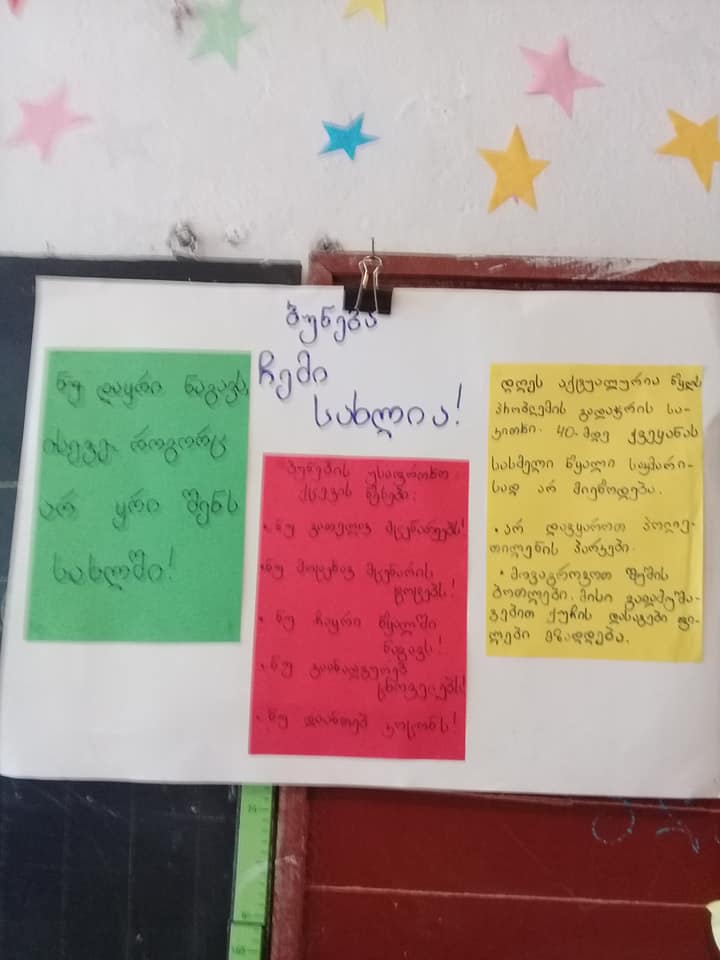 ბუნება
ჩემი
სახლია!
ნუ დაყრი ნაგავს,
ისევე როგორც
არ ყრი შენს
სახლში!
ბუნების უსაფრთხო
ქცევის წესები:
• ნუ გათელავ მცენარეებს!
• ნუ მოტეხავ მცენარის
ტოტებს!
• ნუ ჩაყრი წყალში
ნაგავს!
• ნუ გაანადგურებ
ცხოველებს!
• ნუ დაანთებ კოცონს!
დღეს აქტუალურია წყლის
პრობლემის გადაჭრის სა-
კითხი. 40-მდე ქვეყანას
სასმელი წყალი საკმარი-
სად არ მიეწოდება.
• არ დავყაროთ პოლიე-
თილენის პარკები.
• მოვაგროვოთ შუშის
ბოთლები. მისი გადამუშა-
ვებით ქუჩის დასაგები ფი-
ლები მზადდება.